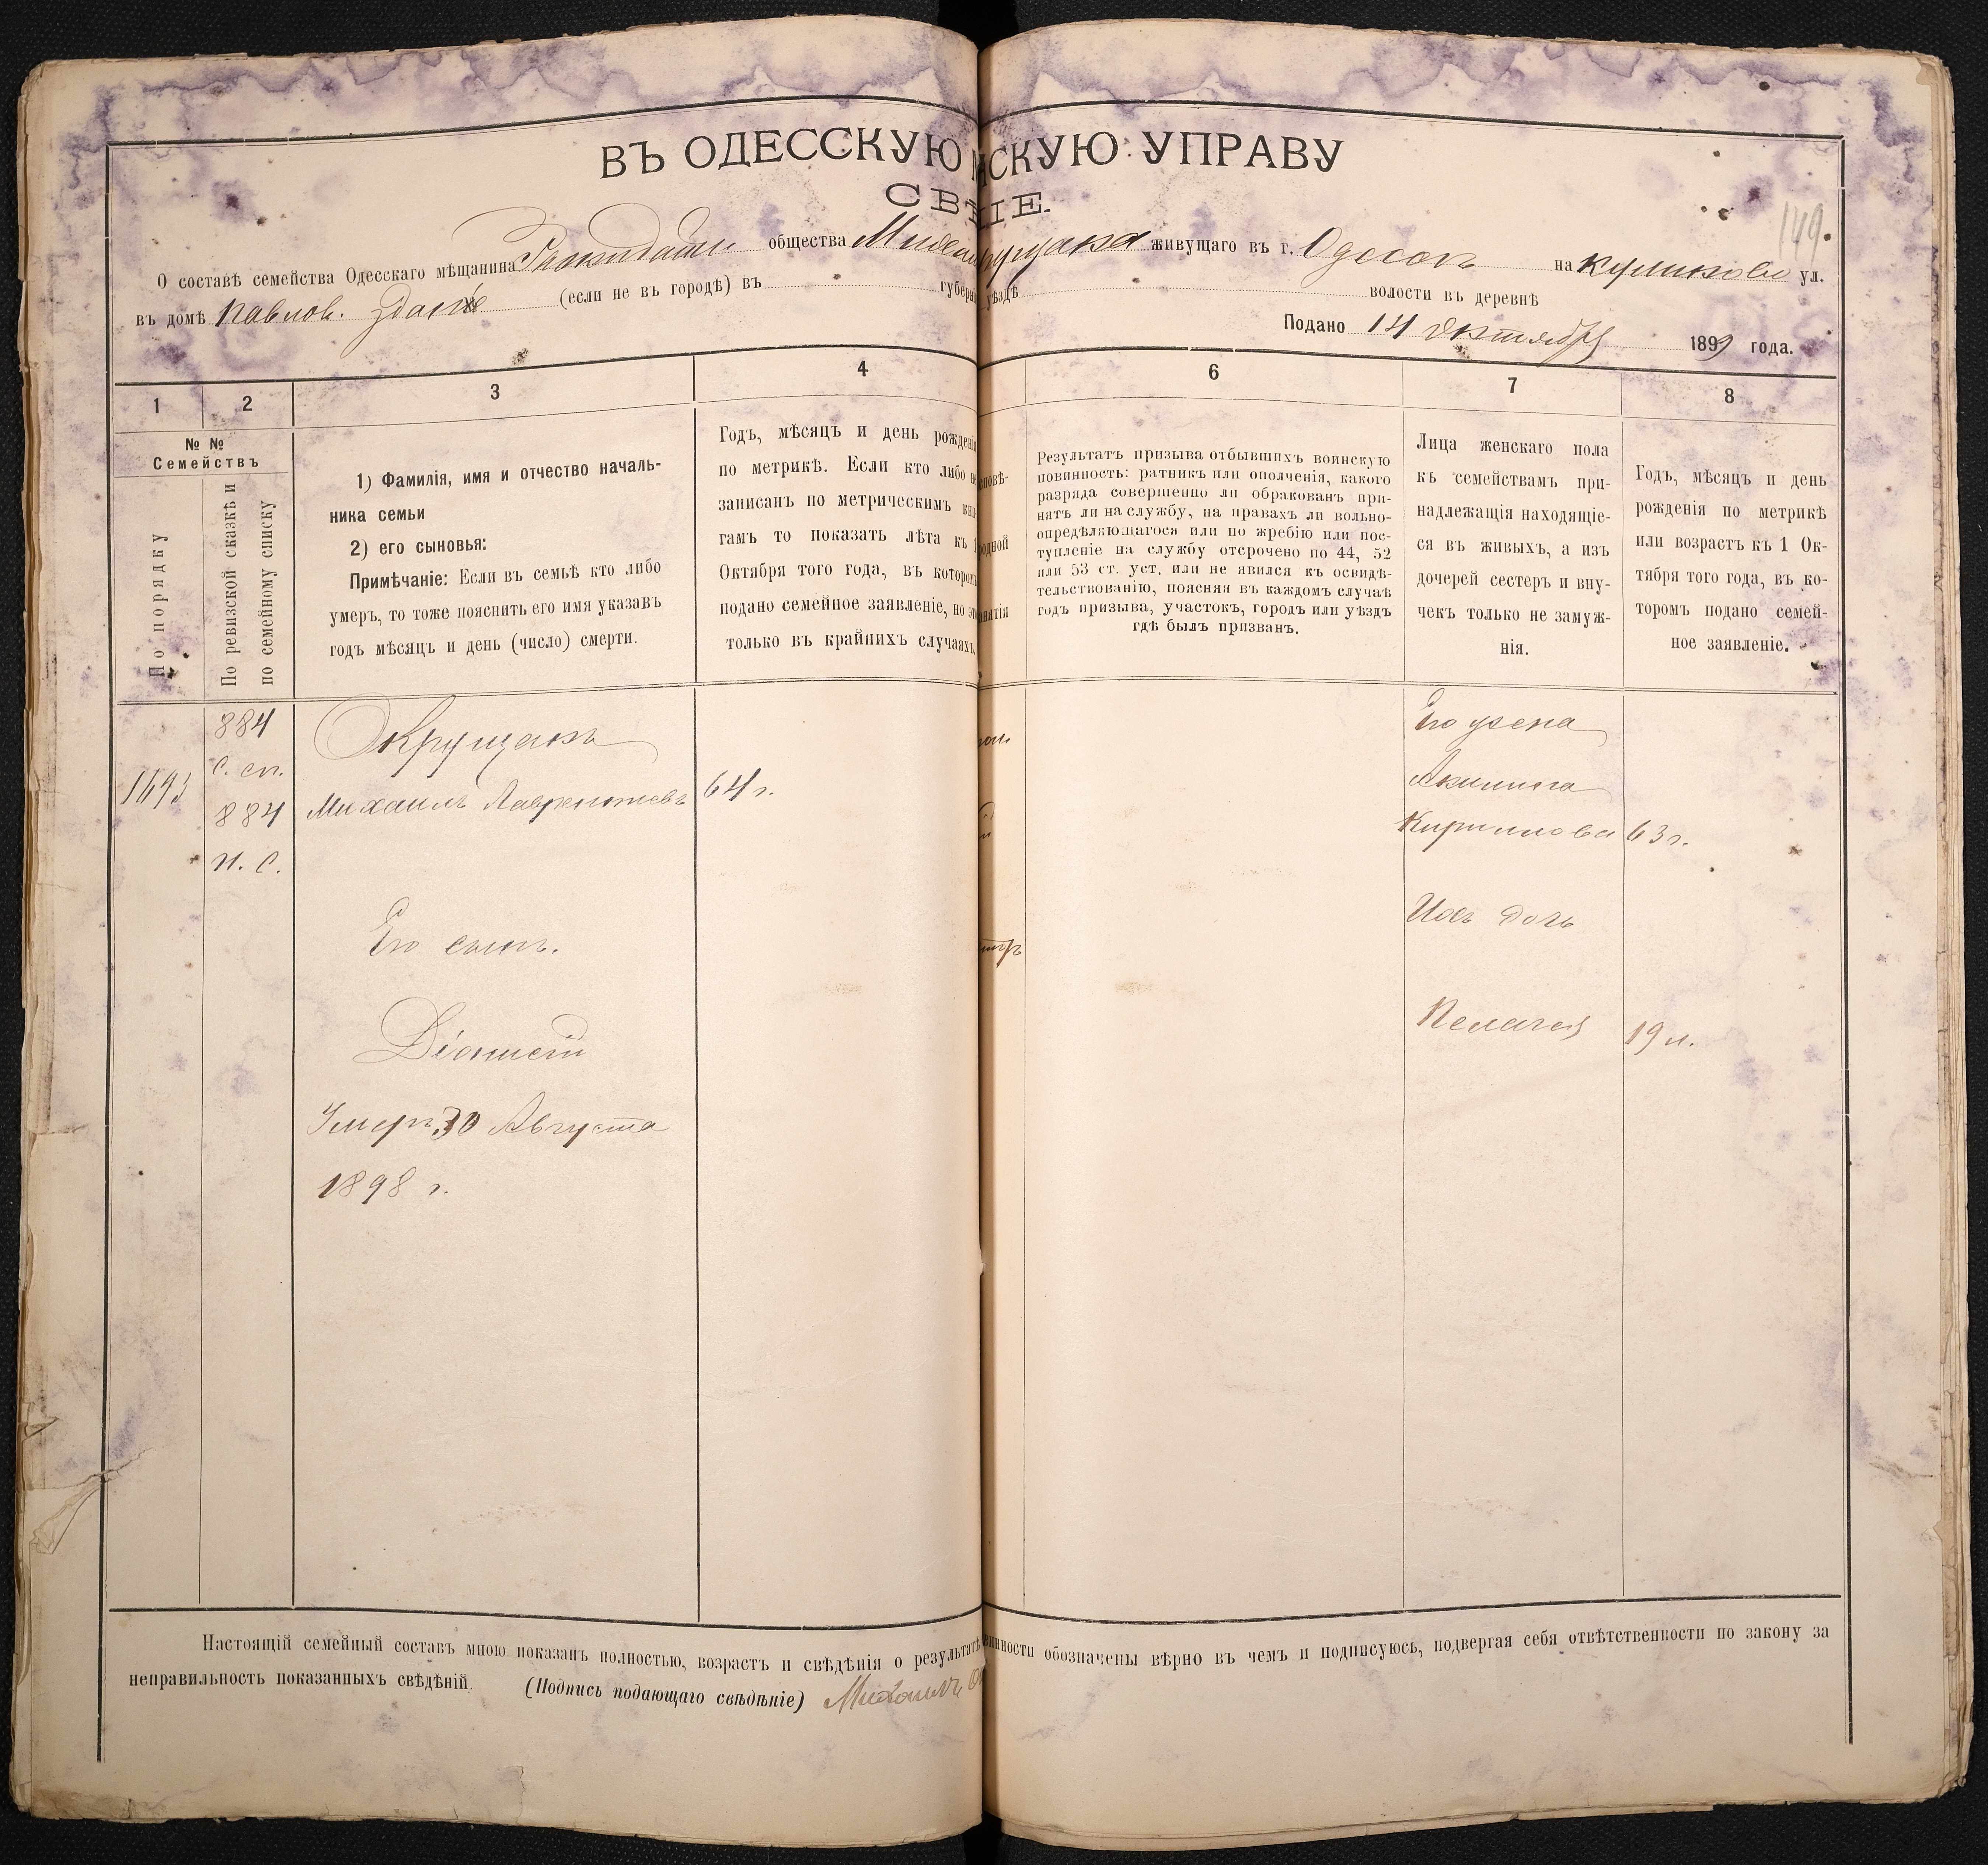 149.
ВЪ ОДЕССКУЮ СКУЮ УПРАВУ
СВ НІЕ.
О составѣ семейства Одесскаго мѣщанина общества живущаго въ г. Одессѣ на куликово ул.
въ домѣ Павлов. зданіе (если не въ городѣ) въ губер уѣздѣ волости въ деревнѣ
Подано 14 Октября 1899 года.
1 2 3 4 6 7 8
№ №
Семействъ
По порядку
По ревизской сказкѣ и
по семейному списку
1) Фамилія, имя и отчество началь-
ника семьи
2) его сыновья:
Примѣчаніе: Если въ семьѣ кто либо
умеръ, то тоже пояснить его имя указавъ
годъ мѣсяцъ и день (число) смерти.
Годъ, мѣсяцъ и день рожденія
по метрикѣ. Если кто либо не
записанъ по метрическимъ кни-
гамъ то показать лѣта къ 1
Октября того года, въ которомъ
подано семейное заявленіе, но это
только въ крайнихъ случаяхъ.
повѣ-
одной
нятія
Результатъ призыва отбывшихъ воинскую
повинность: ратникъ или ополченія, какого
разряда совершенно ли обракованъ при-
нятъ ли на службу, на правахъ ли вольно-
опредѣляющагося или по жребію или пос-
тупленіе на службу отсрочено по 44, 52
или 53 ст. уст. или не явился къ освидѣ-
тельствованію, поясняя въ каждомъ случаѣ
годъ призыва, участокъ, городъ или уѣздъ
гдѣ былъ призванъ.
Лица женскаго пола
къ семействамъ при-
надлежащія находящіе-
ся въ живыхъ, а изъ
дочерей сестеръ и вну-
чекъ только не замуж-
нія.
Годъ, мѣсяцъ и день
рожденія по метрикѣ
или возрастъ къ 1 Ок-
тября того года, въ ко-
торомъ подано семей-
ное заявленіе.
1693
884
с. сп.
884
н. с.
Окрущакъ
Михаилъ Лаврентьевъ 64 г.
Его сынъ.
Діонисій
Умеръ 30 Августа
1898 г.
Его жена
Акилина
Кириллова 63 г.
Ихъ дочь
Пелагея 19 л.
Настоящій семейный составъ мною показанъ полностью, возрастъ и свѣдѣнія о результатѣ инности обозначены вѣрно въ чемъ и подписуюсь, подвергая себя отвѣтственности по закону за
неправильность показанныхъ свѣдѣній. (Подпись подающаго свѣдѣніе) Михаилъ